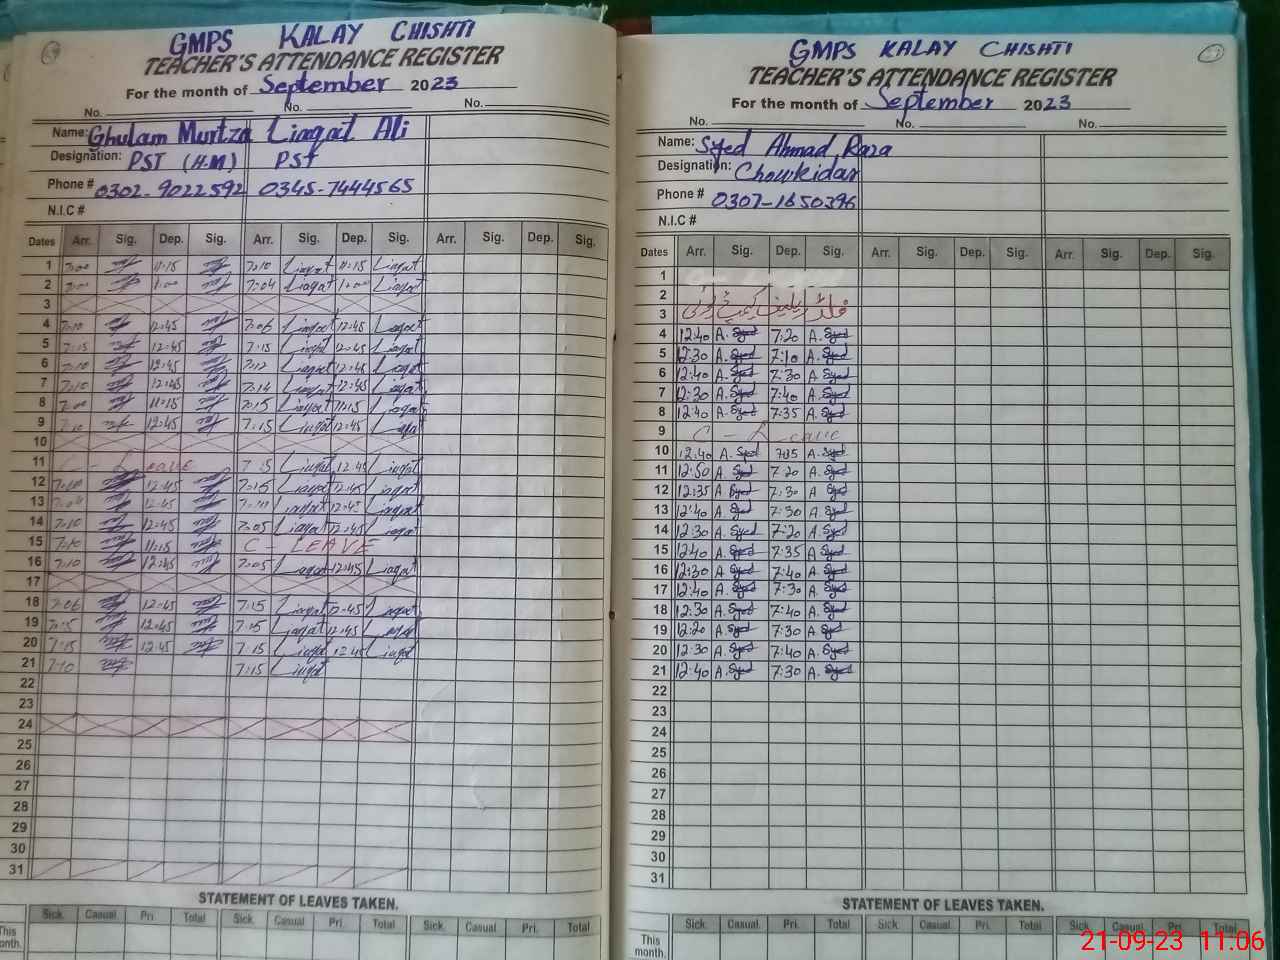 GMPS KALAY CHISHTI
TEACHER'S ATTENDANCE REGISTER
For the month of September 2023
No. No. No.
Name: Ghulam Murtza Liaqat Ali
Designation: PST (H.M) PST
Phone # 0302-9022592 0345-7444565
N.I.C #
Dates Arr. Sig. Dep. Sig. Arr. Sig. Dep. Sig. Arr. Sig. Dep. Sig.
1 7:00 11:15 7:10 Liaqat 11:15 Liaqat
2 7:00 1:00 7:04 Liaqat 1:00 Liaqat
3
4 7:10 12:45 7:06 Liaqat 12:45 Liaqat
5 7:15 12:45 7:15 Liaqat 12:45 Liaqat
6 7:10 12:45 7:12 Liaqat 12:45 Liaqat
7 7:10 12:45 7:14 Liaqat 12:45 Liaqat
8 7:00 11:15 7:15 Liaqat 11:15 Liaqat
9 7:10 12:45 7:15 Liaqat 12:45 Liaqat
10
11 C - Leave 7:15 Liaqat 12:45 Liaqat
12 7:10 12:45 7:15 Liaqat 12:45 Liaqat
13 7:04 12:45 7:10 Liaqat 12:45 Liaqat
14 7:10 12:45 7:05 Liaqat 12:45 Liaqat
15 7:10 11:15 C - LEAVE
16 7:10 12:45 7:05 Liaqat 12:45 Liaqat
17
18 7:06 12:45 7:15 Liaqat 12:45 Liaqat
19 7:15 12:45 7:15 Liaqat 12:45 Liaqat
20 7:15 12:45 7:15 Liaqat 12:45 Liaqat
21 7:10 7:15 Liaqat
22
23
24
25
26
27
28
29
30
31
STATEMENT OF LEAVES TAKEN.
Sick. Casual Pri. Total Sick. Casual Pri. Total Sick. Casual Pri. Total
This month.
GMPS KALAY CHISHTI
TEACHER'S ATTENDANCE REGISTER
For the month of September 2023
No. No. No.
Name: Syed Ahmad Raza
Designation: Chowkidar
Phone # 0307-1650396
N.I.C #
Dates Arr. Sig. Dep. Sig. Arr. Sig. Dep. Sig. Arr. Sig. Dep. Sig.
1
2
3 فلڈ ریلیف کیمپ ڈیوٹی
4 12:40 A. Syed 7:20 A. Syed
5 12:30 A. Syed 7:10 A. Syed
6 12:40 A. Syed 7:30 A. Syed
7 12:30 A. Syed 7:40 A. Syed
8 12:40 A. Syed 7:35 A. Syed
9 C - Leave
10 12:40 A. Syed 7:05 A. Syed
11 12:50 A. Syed 7:20 A. Syed
12 12:35 A. Syed 7:30 A Syed
13 12:40 A. Syed 7:30 A. Syed
14 12:30 A. Syed 7:20 A. Syed
15 12:40 A. Syed 7:35 A. Syed
16 12:30 A. Syed 7:40 A. Syed
17 12:40 A. Syed 7:30 A. Syed
18 12:30 A. Syed 7:40 A. Syed
19 12:20 A. Syed 7:30 A. Syed
20 12:30 A. Syed 7:40 A. Syed
21 12:40 A. Syed 7:30 A. Syed
22
23
24
25
26
27
28
29
30
31
STATEMENT OF LEAVES TAKEN.
Sick. Casual. Pri. Total Sick. Casual. Pri. Total Sick. Casual. Pri. Total
This month.
21-09-23 11.06